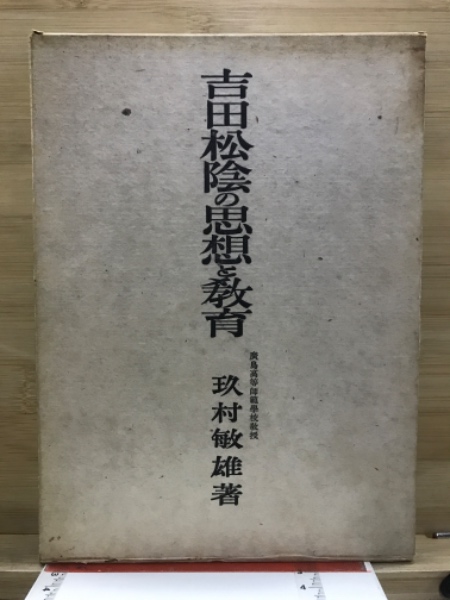 吉田松陰の思想と教育
廣島高等師範學校教授
玖村敏雄著